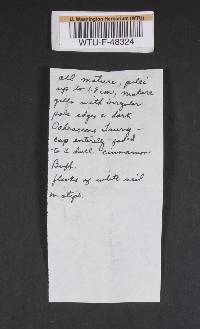 U. Washington Herbarium (WTU)
WTU-F-48324
all mature, pilei
up to 1.8 cm, mature
gills with irregular
pale edges & dark
Ochraceous Tawny -
cap entirely faded
to ± dull cinnamon
Buff.
flecks of white veil
on stipe.